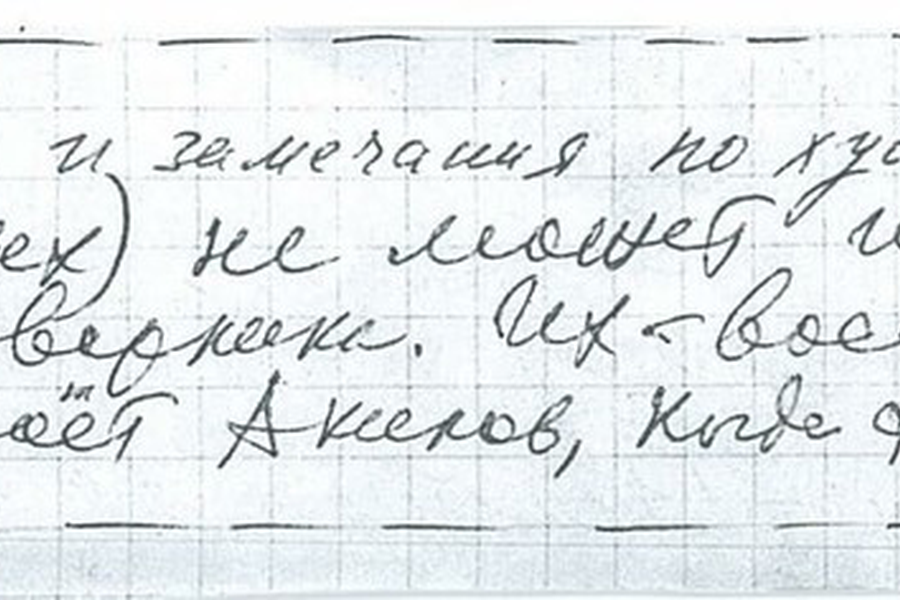 и замечания по худ
ех) не может и
верника. Их - вос
оёт Акипов, когда ф